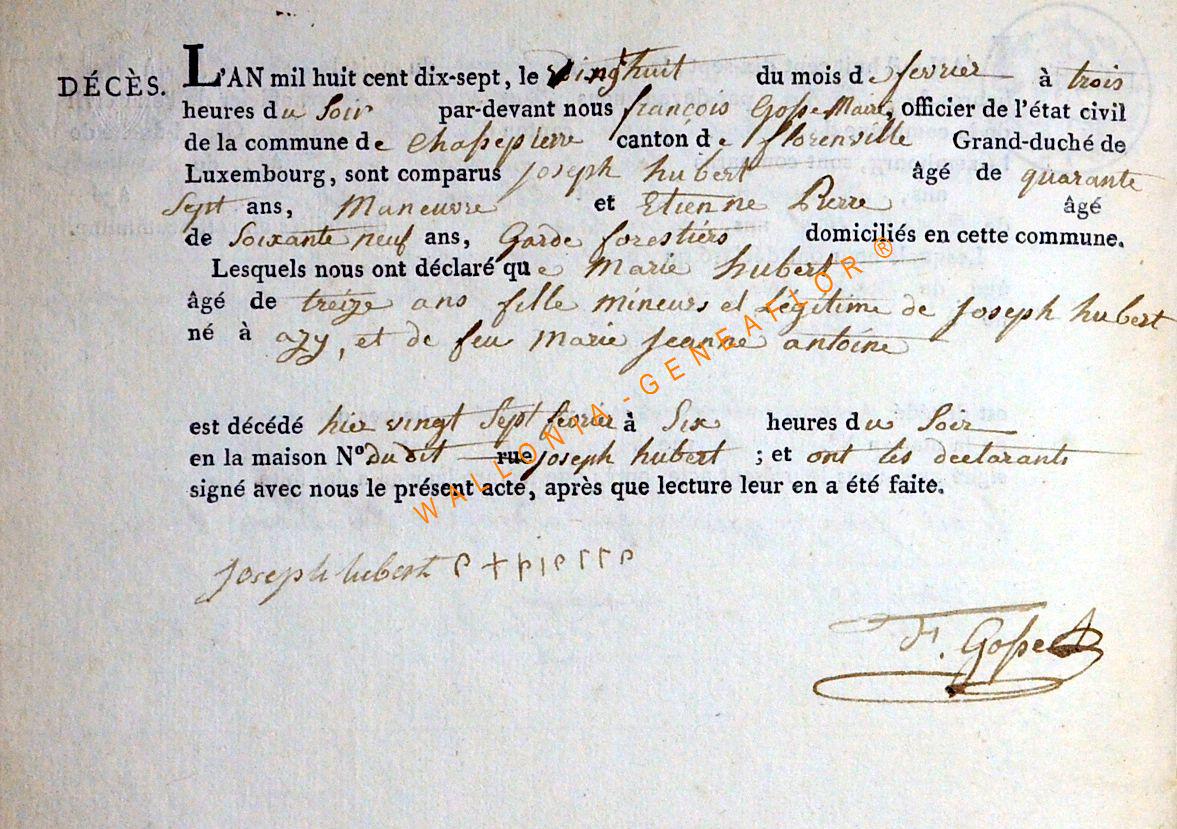 DÉCÈS. L'AN mil huit cent dix-sept, le vingt huit du mois de fevrier à trois
heures du Soir par-devant nous françois Gosse Maire, officier de l'état civil
de la commune de Chassepierre canton de florenville Grand-duché de
Luxembourg, sont comparus joseph hubert âgé de quarante
Sept ans, Maneuvre et Etienne Pierre âgé
de Soixante neuf ans, Garde forestiers domiciliés en cette commune.
Lesquels nous ont déclaré que Marie hubert
âgé de treize ans fille mineurs et Légitime de joseph hubert
né à azy, et de feu Marie jeanne antoine
est décédé hier vingt Sept fevrier à Six heures du Soir
en la maison Nº du dit rue joseph hubert ; et ont les declarants
signé avec nous le présent acte, après que lecture leur en a été faite.
joseph hubert e + pierre
F. Gosse
WALLONIA-GENEAFLOR ®